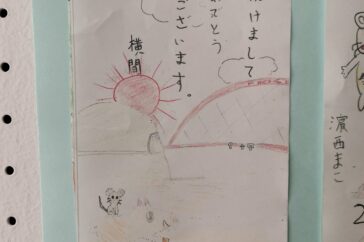 けまして
でとう
ございます。
横間
濱西まこ
2